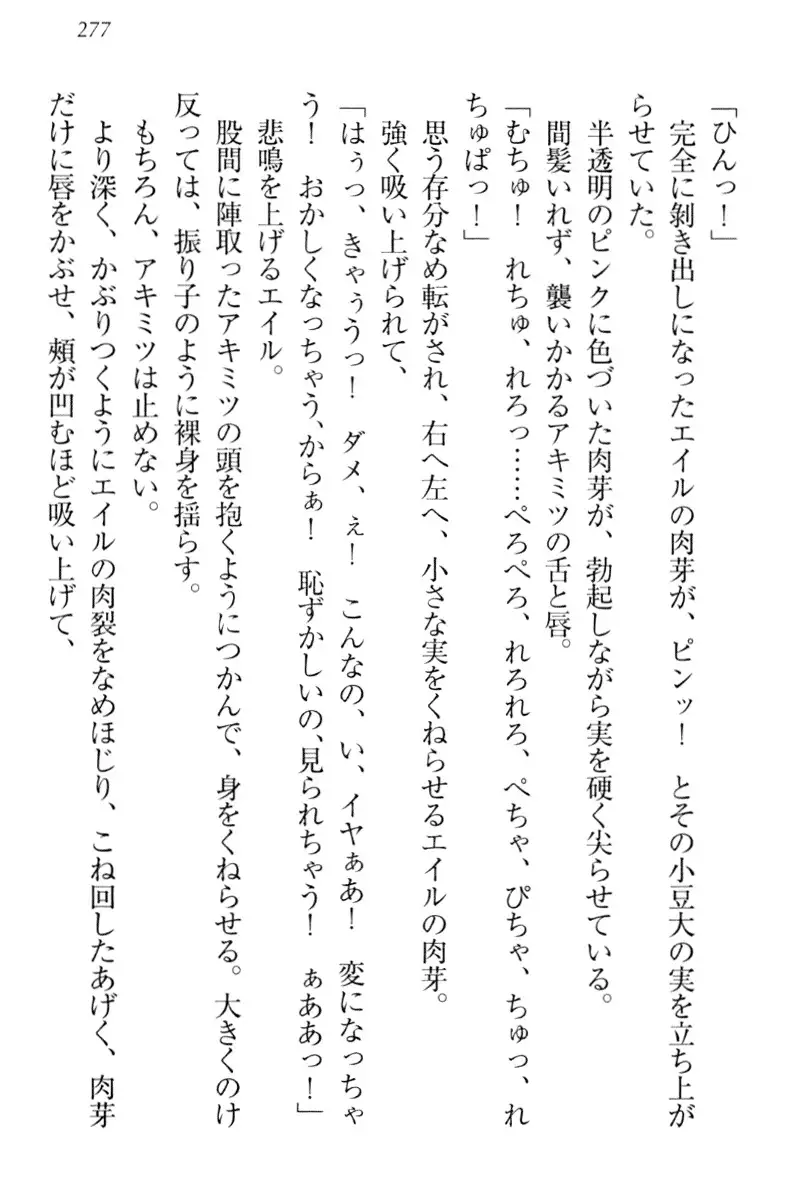 277
「ひんっ！」
　完全に剝き出しになったエイルの肉芽が、ピンッ！　とその小豆大の実を立ち上が
らせていた。
　半透明のピンクに色づいた肉芽が、勃起しながら実を硬く尖らせている。
　間髪いれず、襲いかかるアキミツの舌と唇。
「むちゅ！　れちゅ、れろっ……ぺろぺろ、れろれろ、ぺちゃ、ぴちゃ、ちゅっ、れ
ちゅぱっ！」
　思う存分なめ転がされ、右へ左へ、小さな実をくねらせるエイルの肉芽。
　強く吸い上げられて、
「はぅっ、きゃぅうっ！　ダメ、ぇ！　こんなの、い、イヤぁあ！　変になっちゃ
う！　おかしくなっちゃう、からぁ！　恥ずかしいの、見られちゃう！　ぁああっ！」
　悲鳴を上げるエイル。
　股間に陣取ったアキミツの頭を抱くようにつかんで、身をくねらせる。大きくのけ
反っては、振り子のように裸身を揺らす。
　もちろん、アキミツは止めない。
　より深く、かぶりつくようにエイルの肉裂をなめほじり、こね回したあげく、肉芽
だけに唇をかぶせ、頰が凹むほど吸い上げて、